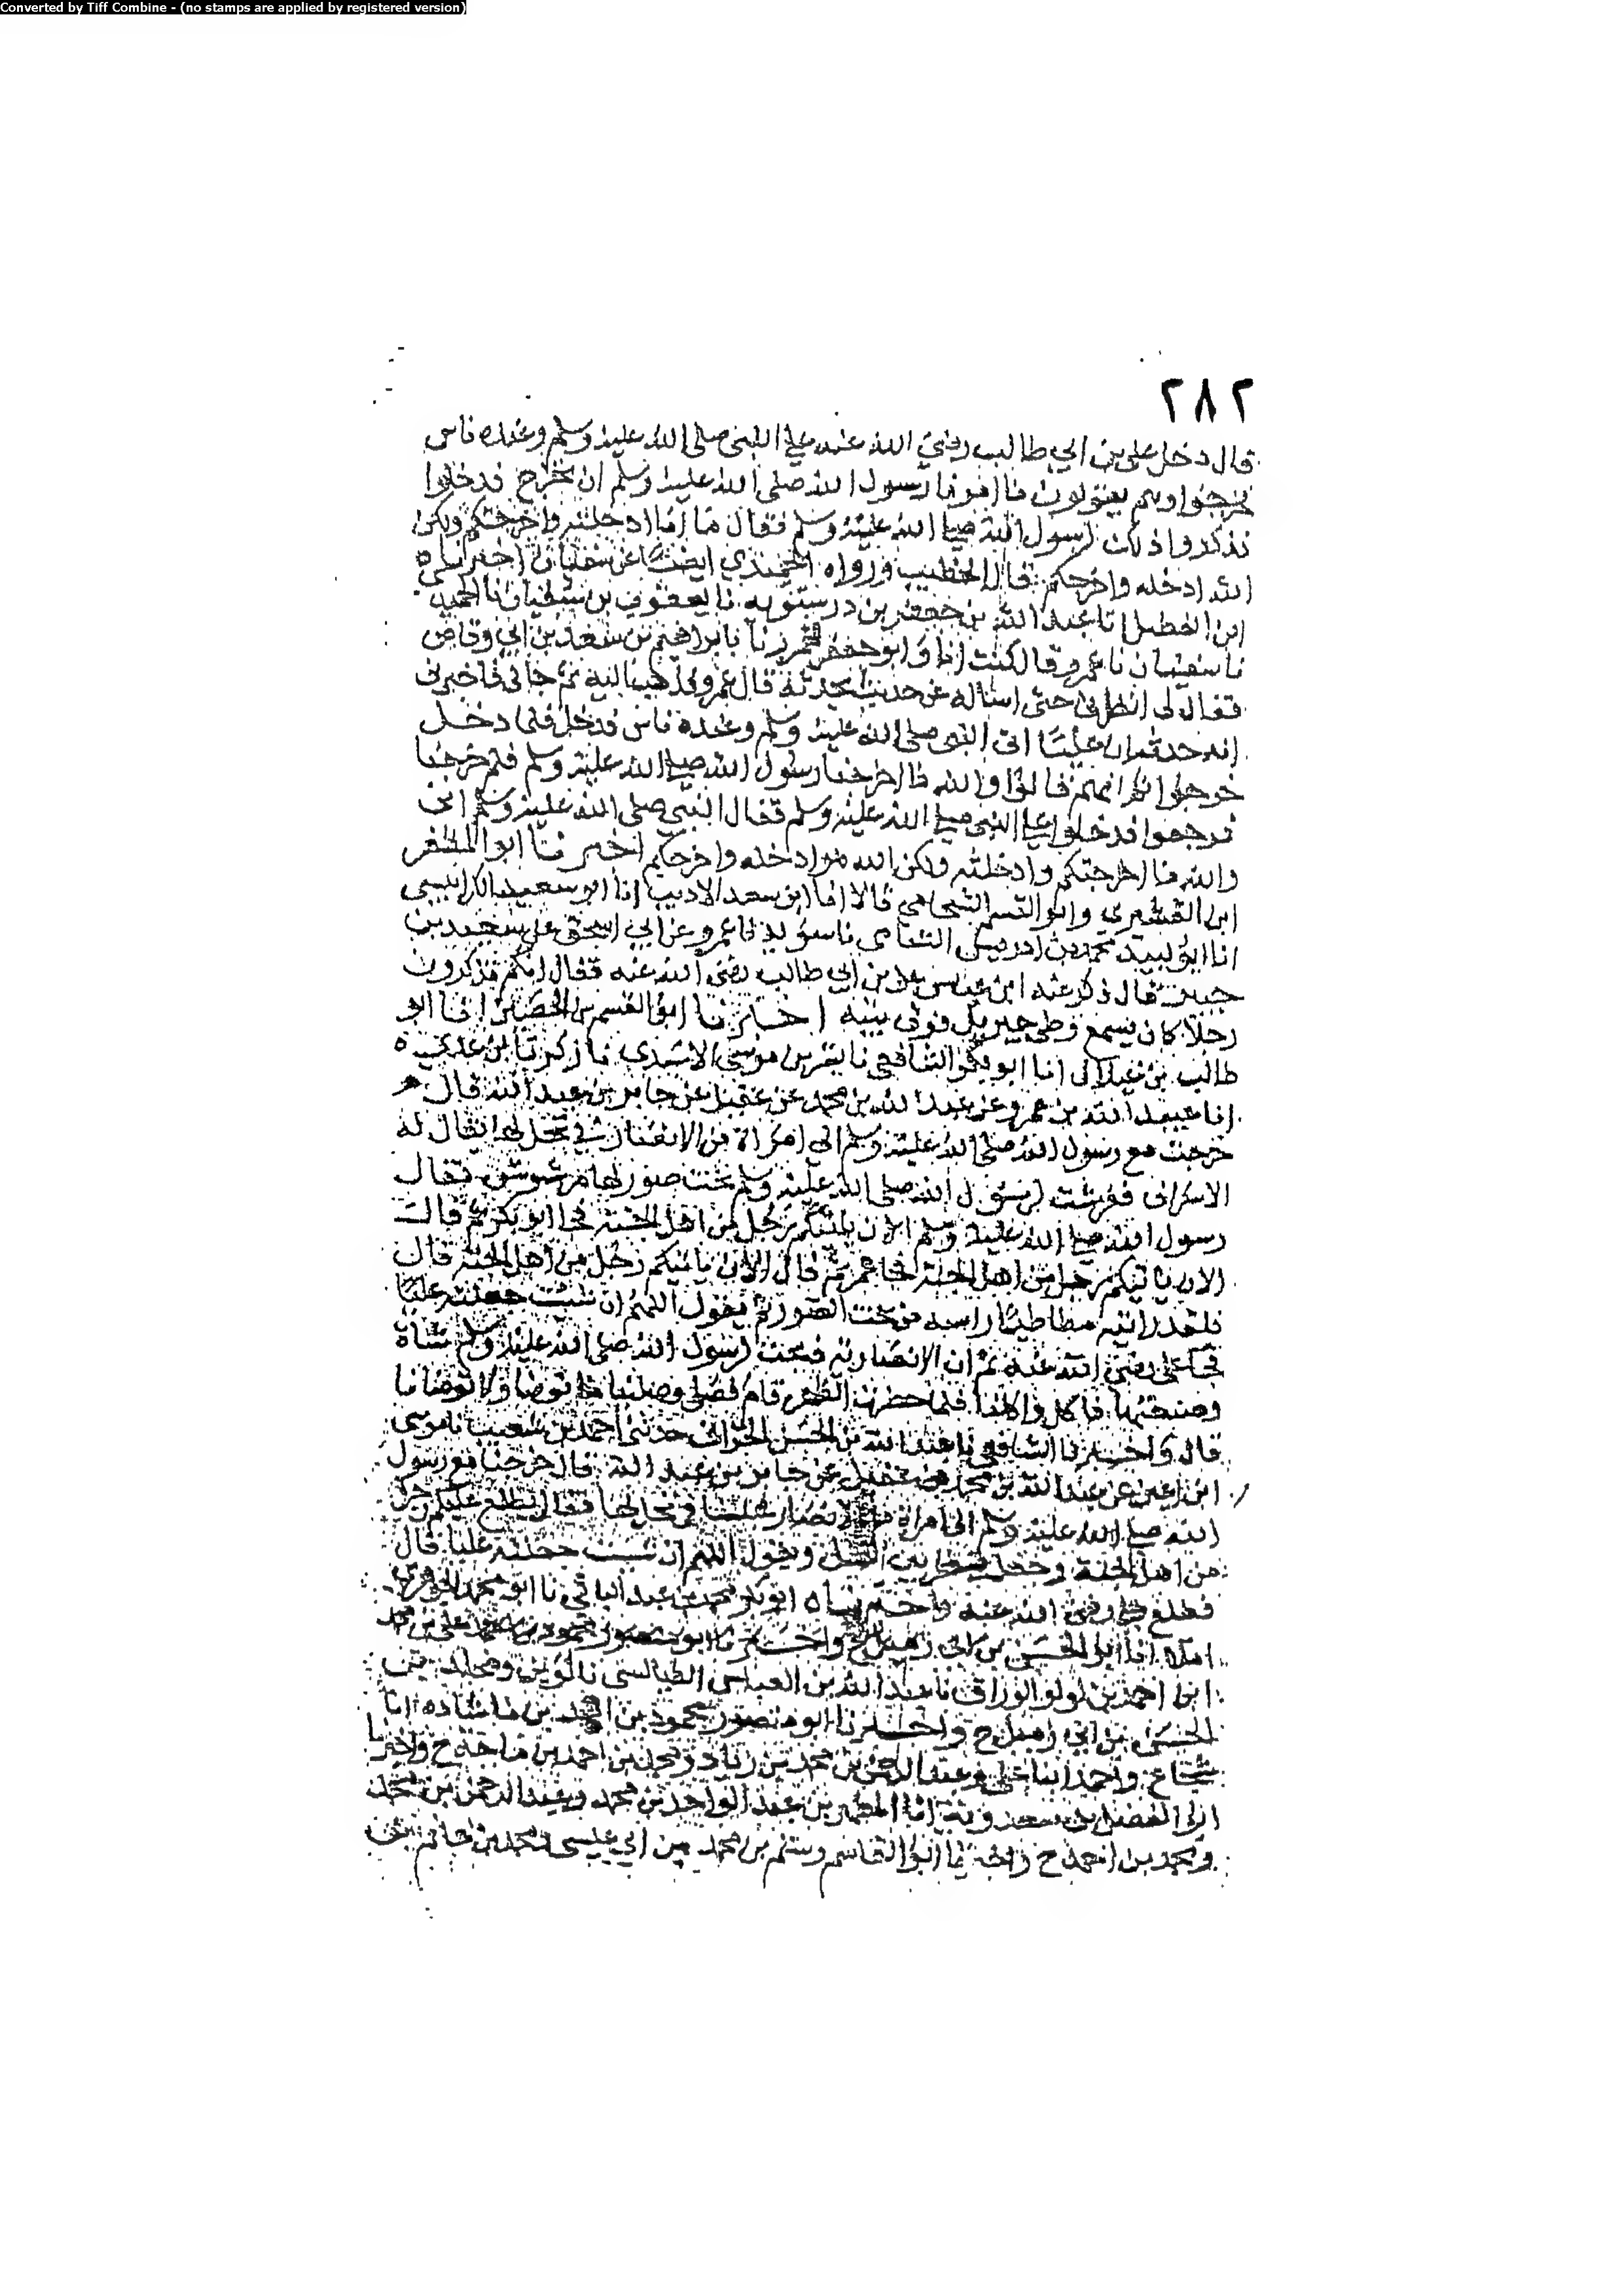 Converted by Tiff Combine - (no stamps are applied by registered version)
٢٨٢
قال دخل علي بن ابي طالب رضي الله عنه علي النبي صلى الله عليه وسلم وعنده ناس
فخرجوا وهم يقولون ما امرنا رسول الله صلى الله عليه وسلم ان نخرج فدخلوا
فذكروا ذلك لرسول الله صلى الله عليه وسلم فقال ما انا ادخلته واخرجتكم ولكن
الله ادخله واخرجكم قال الخطيب ورواه الحميدي ايضا عن سفيان اخبرناه
ابن الفضل انا عبد الله بن جعفر بن درستويه نا يعقوب بن سفيان نا الحميدي
نا سفيان نا عمرو قال كنت انا وابو جعفر نا بابراهيم بن سعد بن ابي وقاص
فقال لي انطلق حتى اساله عن حديث يحدثه قال عمرو فذهب اليه ثم جاني فاخبرني
انه حدثه ان عليا اتى النبي صلى الله عليه وسلم وعنده ناس فدخل فلما دخل
خرجوا ثم انهم قالوا والله ما اخرجنا رسول الله صلى الله عليه وسلم فلم خرجنا
فرجعوا فدخلوا على النبي صلى الله عليه وسلم فقال النبي صلى الله عليه وسلم اني
والله ما اخرجتكم وادخلته ولكن الله هو ادخله واخرجكم اخبرنا ابو المظفر
ابن القشيري وابو القسم الشحامي قالا انا ابو سعد الاديب انا ابو سعيد الكرابيسي
انا ابو لبيد محمد بن ادريس الشامي نا سويد نا عمرو عن ابي اسحق عن سعيد بن
جبير قال ذكر عند ابن عباس علي بن ابي طالب رضي الله عنه فقال انكم تذكرون
رجلا كان يسمع وطي جبريل فوق بيته اخبرنا ابو القسم بن الحصين انا ابو
طالب بن غيلان انا ابو بكر الشافعي نا بشر بن موسى الاسدي نا زكريا بن عدي
انا عبيد الله بن عمرو عن عبد الله بن محمد عن عقيل عن جابر بن عبد الله قال
خرجت مع رسول الله صلى الله عليه وسلم الى امراة من الانصار في نخل لها يقال له
الاسراف ففرشت لرسول الله صلى الله عليه وسلم تحت صور لها مرشوش فقال
رسول الله صلى الله عليه وسلم الان ياتيكم رجل من اهل الجنة فجا ابو بكر ثم قالت
الان ياتيكم رجل من اهل الجنة فجا عمر ثم قال الان ياتيكم رجل من اهل الجنة قال
فلقد رايته مطاطيا راسه من تحت الصور ثم يقول اللهم ان شئت جعلته عليا
فجا علي رضي الله عنه ثم ان الانصارية ذبحت لرسول الله صلى الله عليه وسلم شاة
وصنعتها فاكل واكلنا فلما حضرت الظهر قام فصلى وصلينا ما توضا ولا توضانا
قال واخبرنا الشافعي نا عبد الله بن الحسن الحراني حدثني احمد بن شعيب نا موسى
ابن اعين عن عبد الله بن محمد بن عقيل عن جابر بن عبد الله قال خرجنا مع رسول
الله صلى الله عليه وسلم الى امراة من الانصار فجلسنا في نخل لها فقال يطلع عليكم رجل
من اهل الجنة وجعل ينظر بين النخل ويقول اللهم ان شئت جعلته عليا قال
فطلع علي رضي الله عنه واخبرناه ابو بكر محمد بن عبد الباقي نا ابو محمد الجوهري
املا انا ابو الحسن علي بن محمد
ابن احمد بن لولو الوراق نا عبد الله بن العباس الطيالسي نا لوين
الحسن بن ابي ح واخبرنا ابو منصور محمود بن احمد بن ماشاده انا
شجاع واحمد ابنا علي وعبد الرحمن بن محمد بن زياد ومحمد بن احمد بن ماجه ح واخبرنا
ابو الفضل بن سعدويه انا المطهر بن عبد الواحد بن محمد وعبد الرحمن بن محمد
ومحمد بن احمد ح واخبرنا ابو القاسم رستم بن محمد بن ابي عيسى